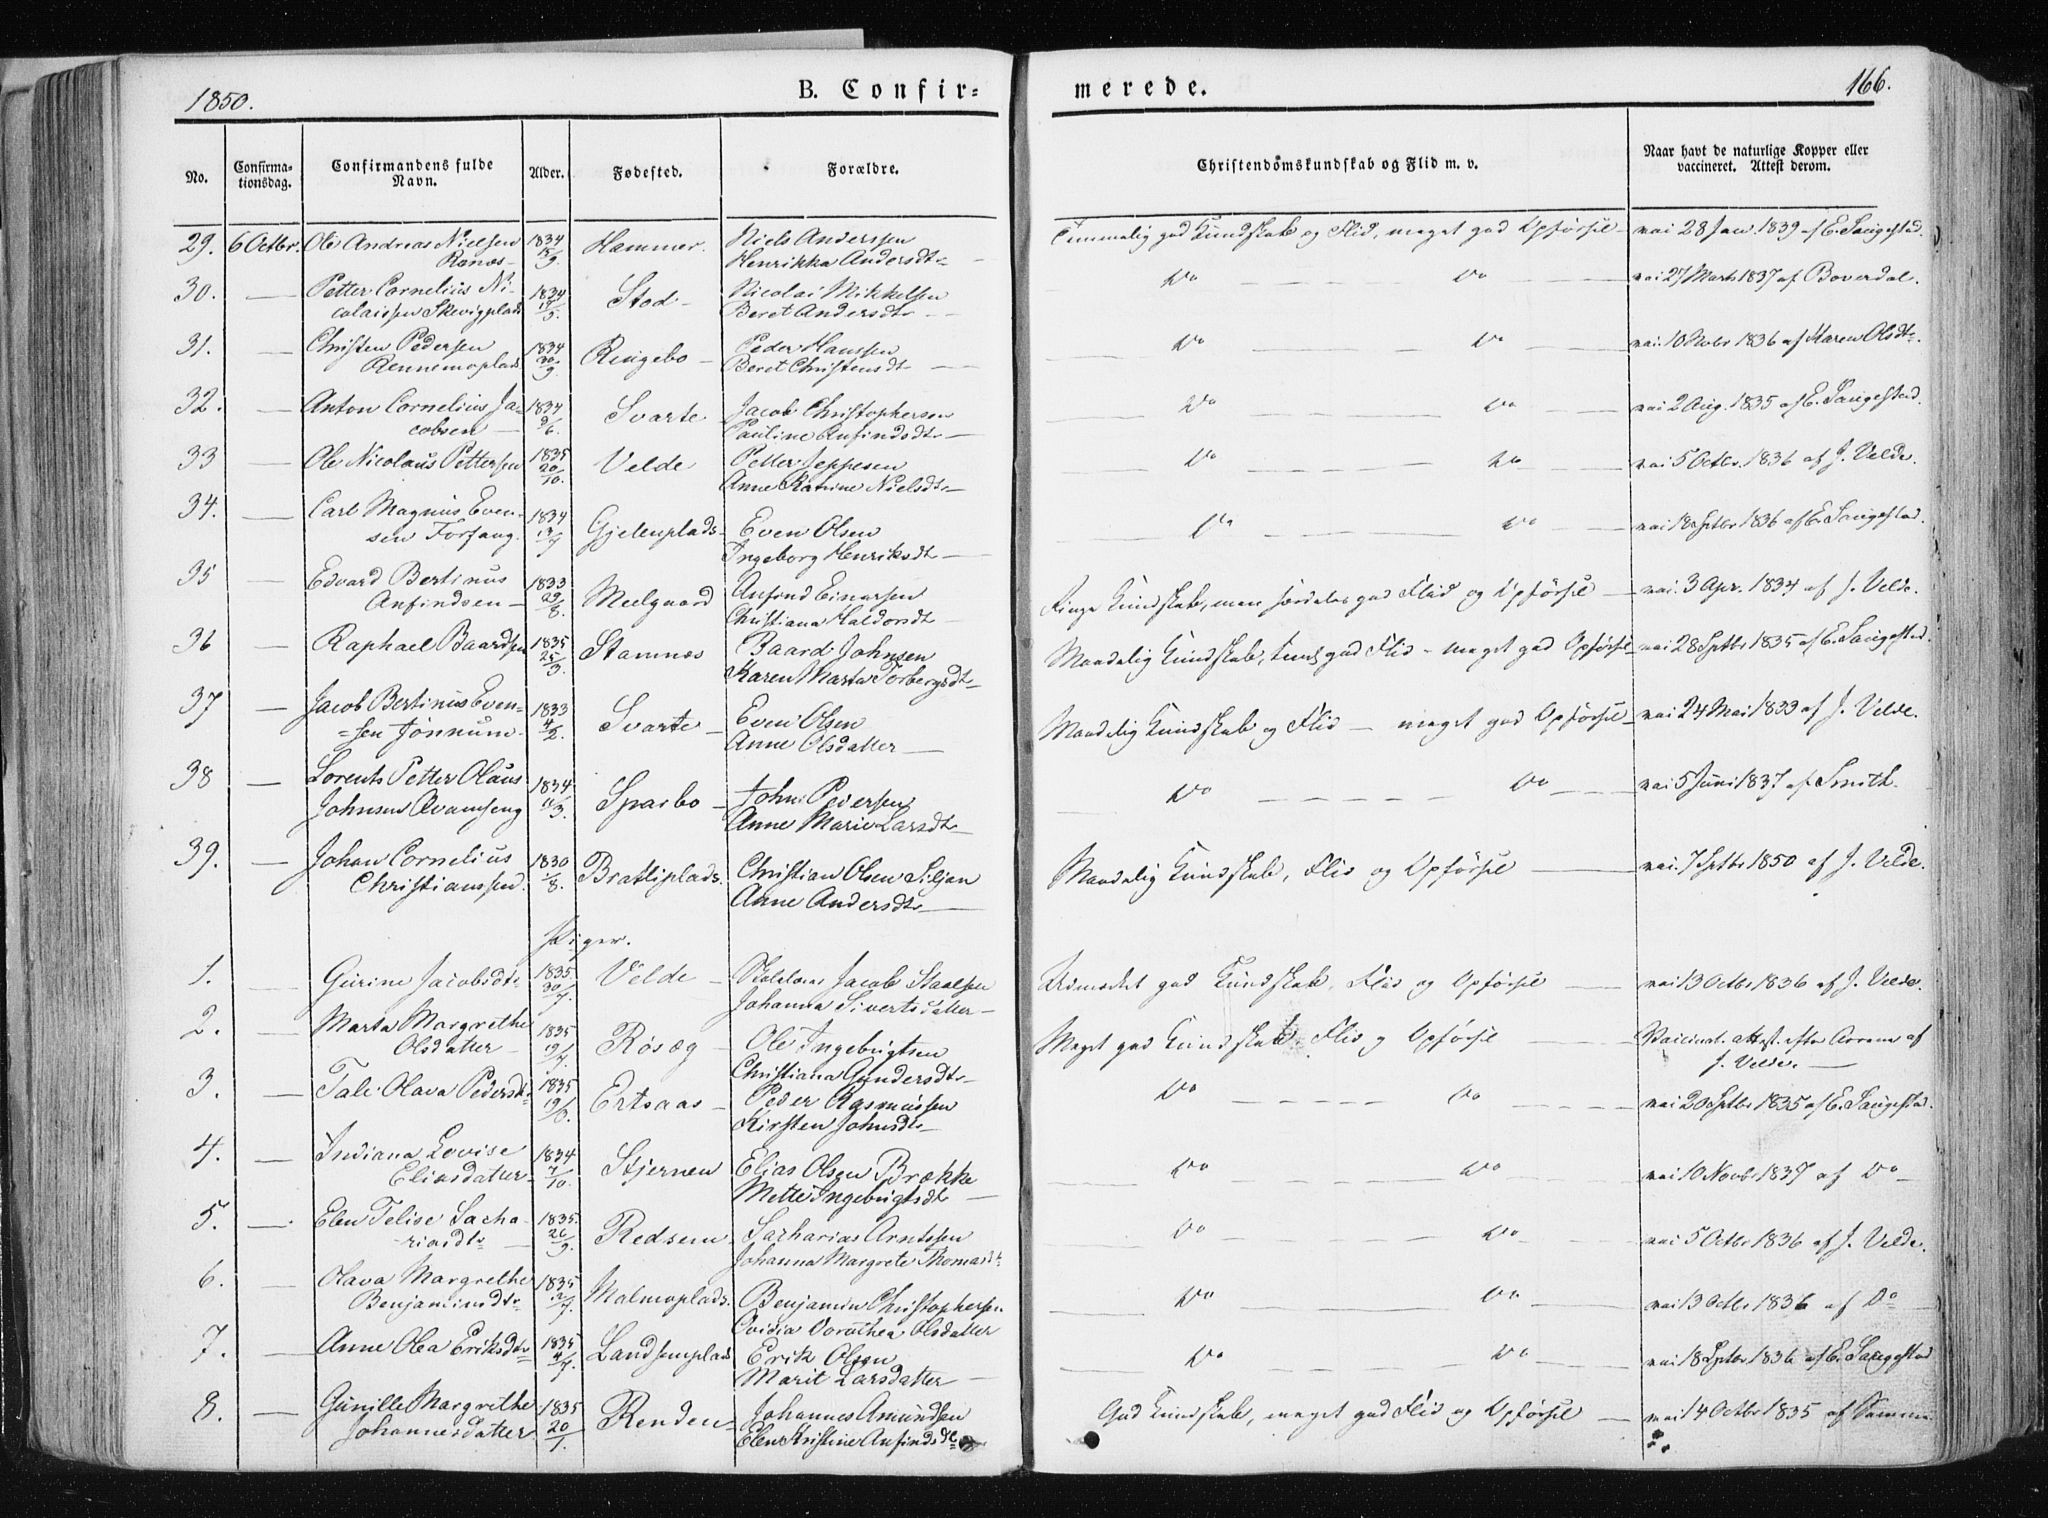 1850.
B. Confir=
merede.
166.
No.
Confirma-
tionsdag.
Confirmandens fulde
Navn.
Alder.
Fødested.
Forældre.
Christendomskundskab og Flid m. v.
Naar havt de naturlige Kopper eller
vaccineret. Attest derom.
29. 6 Octbr. Ole Andreas Nielsen 1834 Hammer. Niels Anderssen Temmelig god Kundskab og Flid, meget god Opførsel vac. 28 Jan. 1839 af E. Saugestad.
Ranæs 18/9. Henrikka Andersdtr
30. Petter Cornelius Ni- 1834 Stod Nicolai Mikkelsen Do Do vac. 27 Marts 1837 af Boverdal.
colaissen Skevigplads 19/5. Beret Andersdtr
31. Christen Pedersen 1834 Ringebo Peder Hanssen Do Do vac. 10 Novbr 1836 af Maren Olsdtr.
Rennemoplads 30/9. Beret Christensdtr
32. Anton Cornelius Ja- 1834 Svarte Jacob Christophersen Do Do vac. 2 Aug. 1835 af E. Saugestad.
cobsen 9/6. Pauline Anfindsdtr
33 Ole Nicolaus Pettersen 1835 Velde Petter Jeppesen Do Do vac. 5 Octbr. 1836 af J. Velde.
20/10. Anne Nielsdtr
34. Carl Magnus Even- 1834 Gjelenplads Even Olsen Do Do vac. 18 Septbr 1836 af E. Saugestad.
sen Forfang. 13/7 Ingeborg Henriksdtr
35 Edvard Bertinus 1833 Meelgaard Anfind Einarsen Ringe Kundskab, men særdeles god Flid og Opførsel vac. 3 Apr. 1834 af J. Velde.
Anfindsen 29/8. Christiana Haldorsdtr
36 Raphael Baardsen 1835 Stamnæs Baard Johnsen Maadelig Kundskab, god Flid - meget god Opførsel vac. 28 Septbr 1835 af E. Saugestad.
25/3. Karen Marta Torbergsdtr
37 Jacob Bertinus Even- 1833 Svarte Even Olsen Maadelig Kundskab og Flid - meget god Opførsel vac. 24 Mai 1833 af J. Velde.
=sen Jønnum. 4/2. Anne Olsdatter
38 Lorents Petter Olaus 1834 Sparbo John Pedersen Do Do vac. 5 Juni 1837 af Smith.
Johnsen Qvamseng 11/3. Anne Marie Larsdtr
39. Johan Cornelius 1830 Brattliplads. Christian Olsen Siljan Maadelig Kundskab, Flid og Opførsel vac. 7 Septbr 1850 af J. Velde.
Christianssen. 1/8. Anne Andersdtr
Piger.
1. Gurine Jacobsdtr 1835. Velde Jacob Staalsen Udmærket god Kundskab, Flid og Opførsel vac. 13 Octbr 1836 af J. Velde.
30/7. Johanna Sivertsdatter
2. Marta Margrethe 1835 Røsæg Ole Ingebrigtsen Meget god Kundskab, Flid og Opførsel Vaccinat. attest. efter af
Olsdatter 19/7. Christiana Gundersdtr J. Velde.
3. Tale Olava Pedersdtr 1835 Ertsaas Peder Rasmussen Do Do vac. 20 Septbr 1835 af E. Saugestad.
Kirsten Johnsdtr
4. Indiana Lovise 1834 Stjernen Elias Olsen Brække Do Do vac. 10 Novbr 1837 af Do
Eliasdatter 7/10. Mette Ingebrigtsdtr
5. Elen Telise Sacha- 1835. Redsem Sacharias Arntssen Do Do vac. 5 Octbr 1836 af J. Velde.
riasdtr 26/9. Johanna Margrete Thomasdtr
6. Olava Margrethe 1835 Malmoplads. Benjamin Christophersen Do Do vac. 13 Octbr 1836 af Do
Benjaminsdtr 12/7. Ovidia Dorothea Olsdatter
7. Anne Olea Eriksdtr 1835 Landsemplads Erik Olsen Do Do vac. 18 Septbr 1836 af E. Saugestad
4/7. Marit Larsdatter
8. Gunille Margrethe 1835 Renden Johannes Amundsen God Kundskab, meget god Flid og Opførsel vac. 14 Octbr 1835 af Samme
Johannesdatter 20/1. Elen Kristine Anfindsdtr